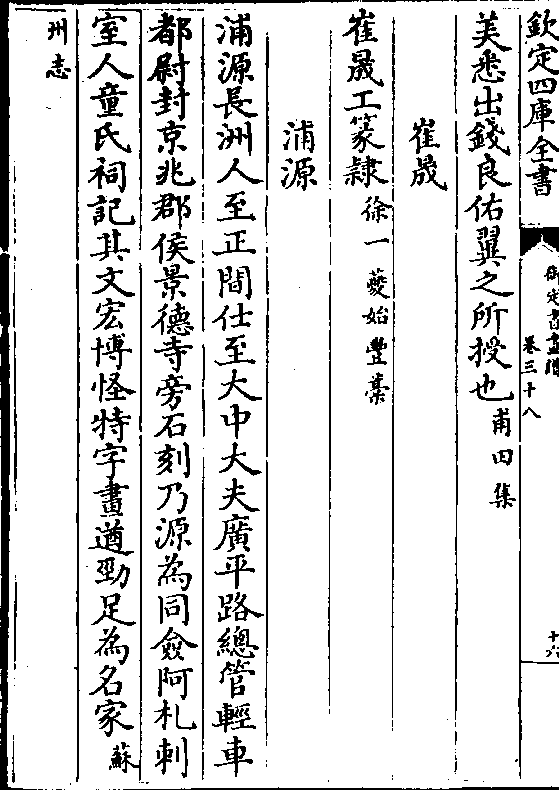 欽定四庫全書
卷三十八
美悉出錢良佑翼之所授也甫田集
崔晟
崔晟工篆隸徐一夔始豐藁
浦源
浦源長洲人至正間仕至大中大夫廣平路總管輕車
都尉封京兆郡侯景德寺旁石刻乃源為同僉阿札剌
室人童氏祠記其文宏博怪特字畫遒勁足為名家蘇
州志